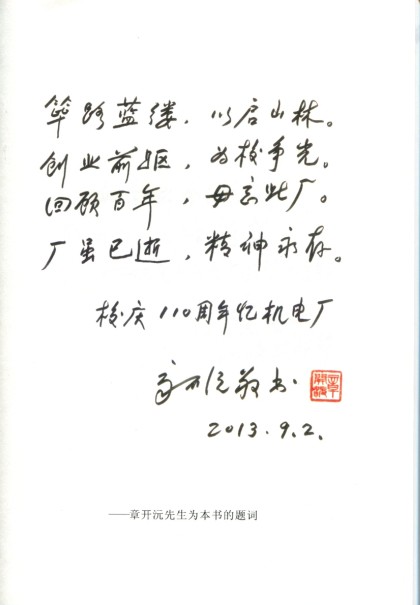 筚路蓝缕，以启山林。
创业前驱，为校争光。
回顾百年，毋忘此厂。
厂虽已逝，精神永存。
校庆110周年忆机电厂
章开沅敬书
2013.9.2.
——章开沅先生为本书的题词